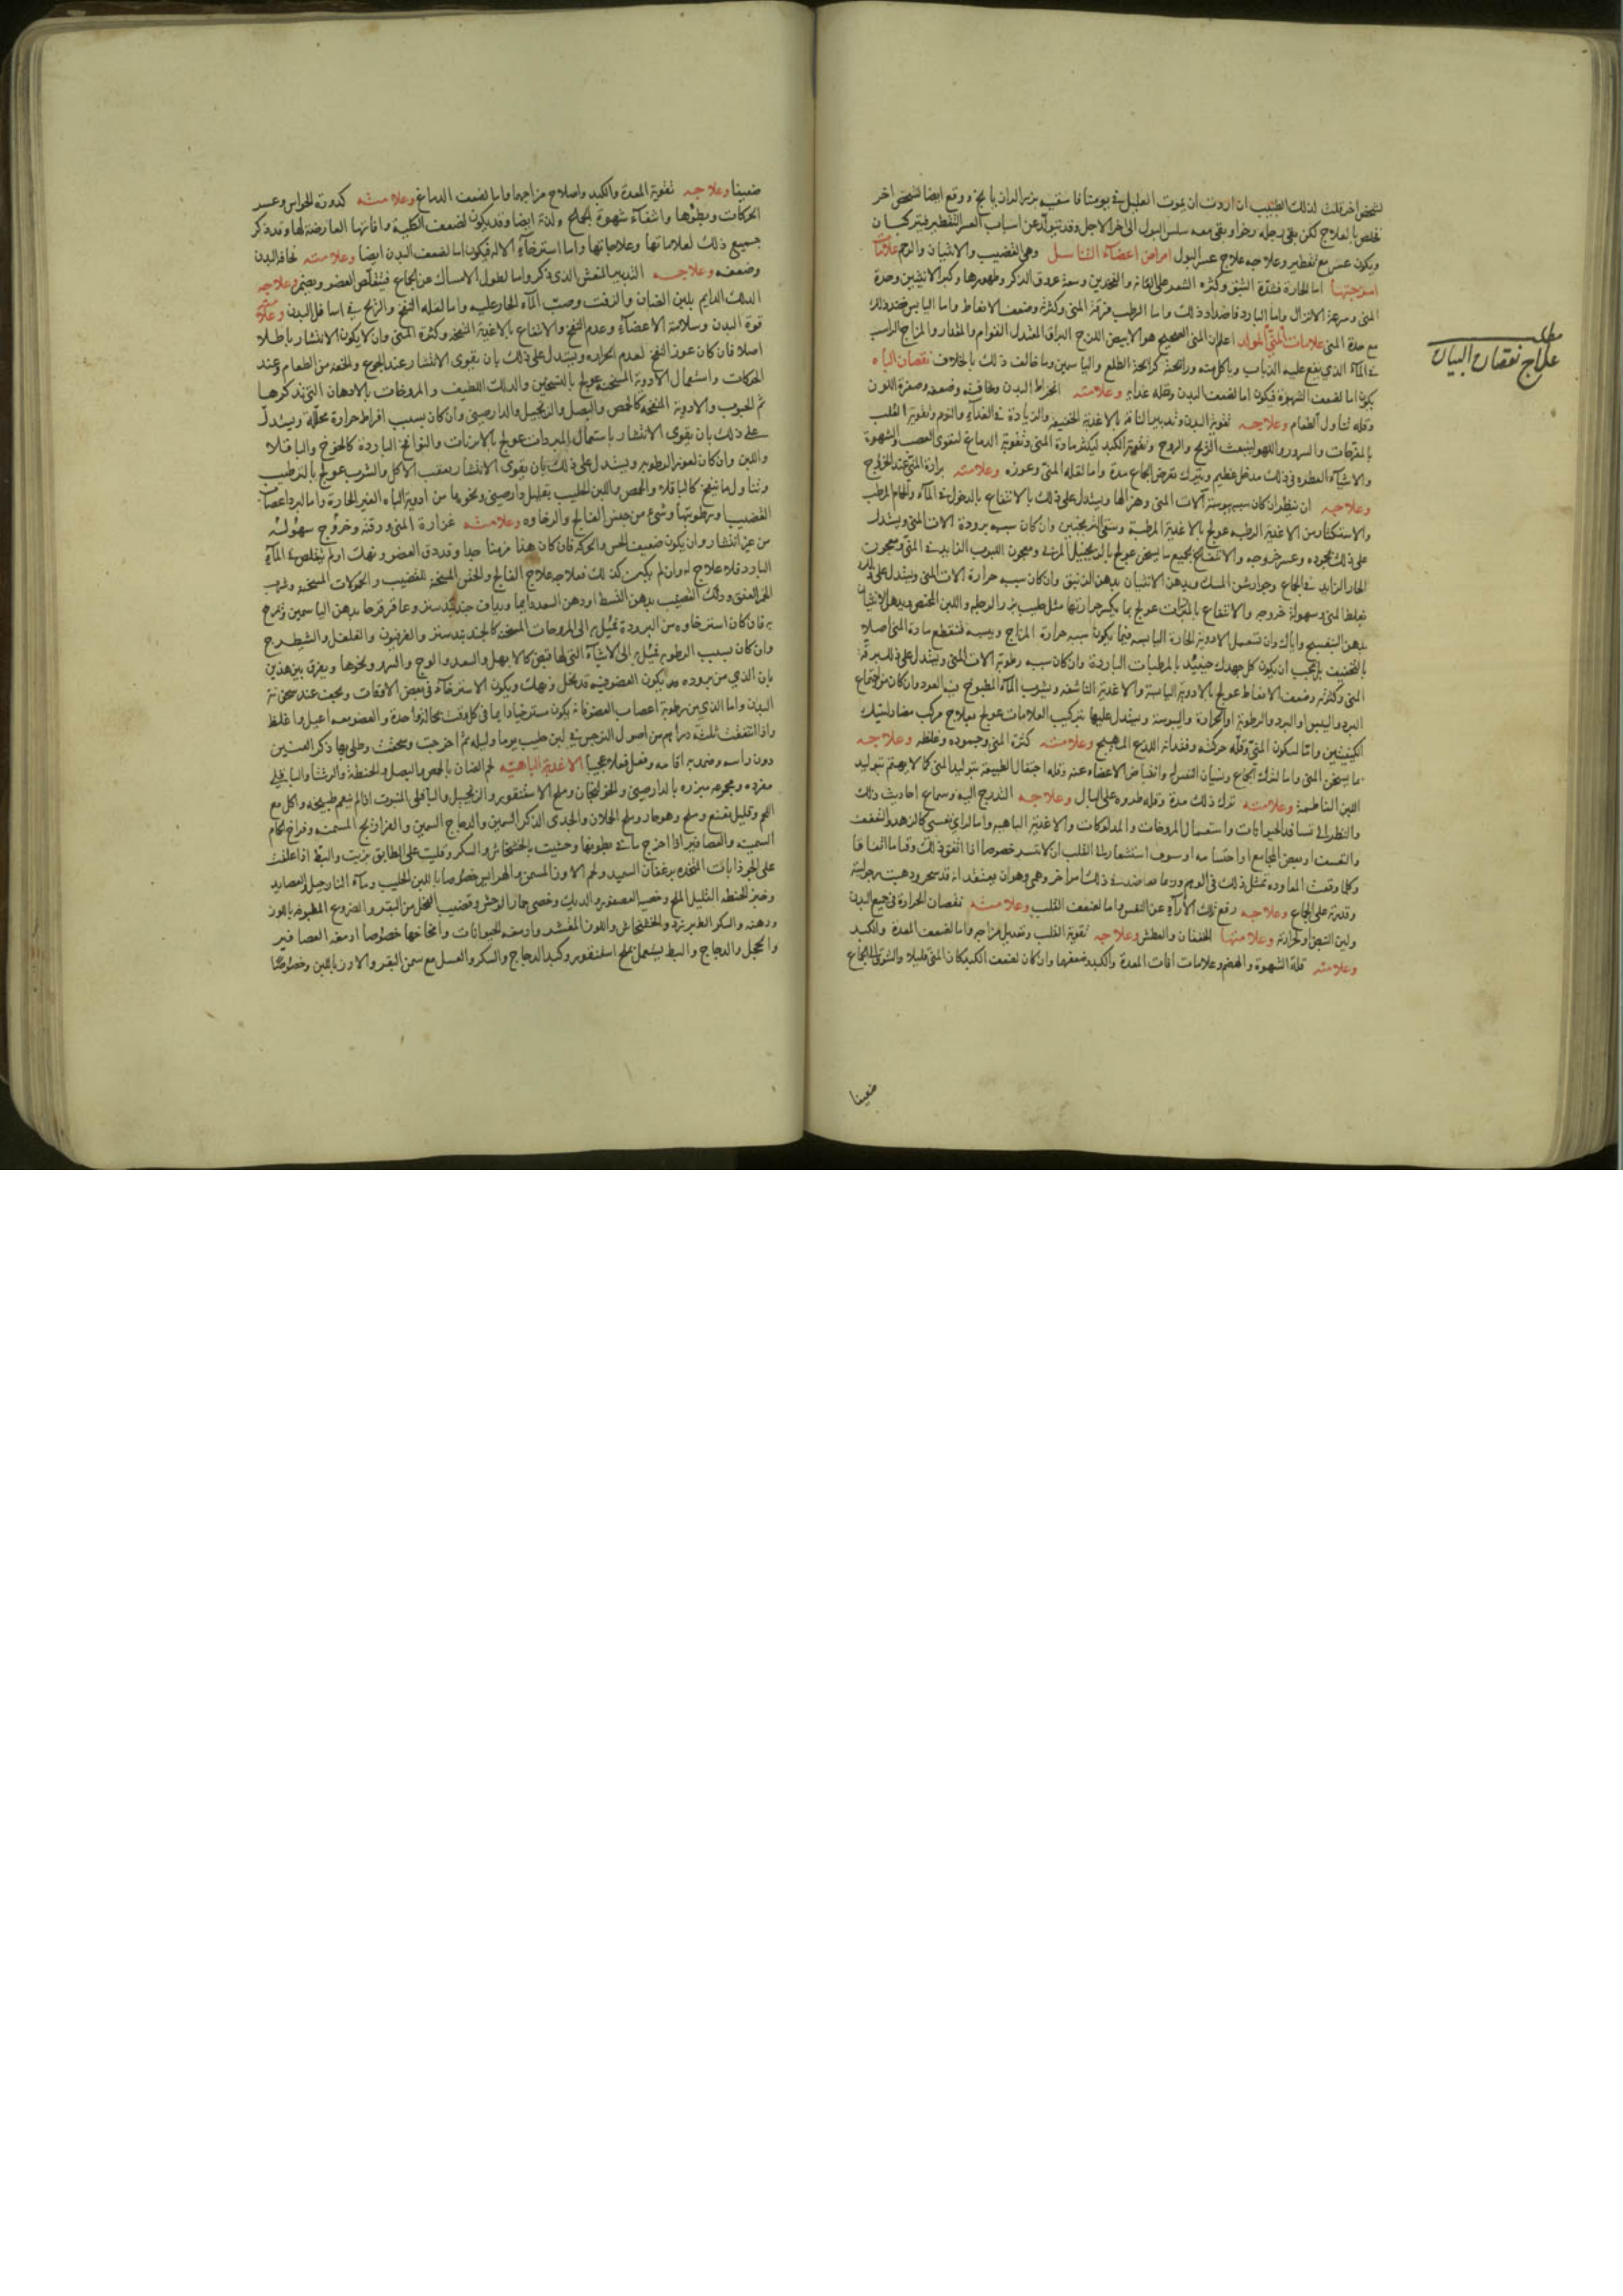 لشخص اخر قلت لذلك الطبيب ان اردت ان يموت العليل في يومنا فاسقيه بزر الرازيانج ووقع ايضا لشخص اخر
تخلص بالعلاج لكن بقي رجله رخوا وبقي معه سلس البول الى اخر الاجل وقد تتولد عن اسباب العسر التقطير فيتركبان
ويكون عسر مع تقطير وعلاجه علاج عسر البول امراض اعضاء التناسل وهي القضيب والانثيان والرحم علامات
امزجتها اما الحارة فشدة الشبق وكثرة الشعر على العانة والفخذين وسعة عروق الذكر وظهورها وكبر الانثيين وحدة
المني وسرعة الانزال واما الباردة فاضداد ذلك واما الرطب فرقة المني وكثرته وضعف الانعاظ واما اليابس فضد ذلك
مع حدة المني علامات المني المولد اعلم ان المني الصحيح هو الابيض اللزج البراق المعتدل القوام والمقدار والمزاج الراسب
في الماء الذي يقع عليه الذباب وياكل منه ورائحته كرائحة الطلع والياسمين وما خالف ذلك بالخلاف نقصان الباه
يكون اما لضعف الشهوة فيكون اما لضعف البدن وقلة غذاه وعلامته انخراط البدن ونحافته وضعفه وصفرة اللون
وقلة تناول الطعام وعلاجه تقوية البدن وتدبير الناقه بالاغذية الخفيفة والزيادة في الغذاء والنوم وتقوية القلب
بالمفرحات والسرور واللهو لينبعث الريح والروح وتقوية الكبد ليكثر مادة المني وتقوية الدماغ لتقوى العصب والشهوة
والاشياء العطرة في ذلك مدخل عظيم ويترك تعرض الجماع مدة واما لقلة المني وعوزه وعلامته برازة المني عند الخروج
وعلاجه ان ينظر ان كان سببه يبوسة آلات المني وهزالها ويستدل على ذلك بالانتفاع بالدخول في الماء والحمام المرطب
والاستكثار من الاغذية الرطبة عولج بالاغذية المرطبة وسقي الترنجبين وان كان سببه برودة الات المني ويستدل
على ذلك بجموده وعسر خروجه والانتفاع بجميع ما يسخن عولج بالزنجبيل المربى ومعجون اللبوب الزايد في المني ومعجون
الحار الزايد في الجماع وجوارشن المسك ويدهن الانثيان بدهن الزنبق وان كان سببه حرارة الات المني ويستدل على ذلك
بغلظ المني وسهولة خروجه والانتفاع بالمبردات عولج بما يكسر حرارتها مثل حليب بزر الرجلة واللبن الحمض ويدهن الانثيان
بدهن البنفسج واياك وان تستعمل الادوية الحارة اليابسة فيما يكون سببه حرارة المزاج ويبسه فتقطع مادة المني اصلا
بالتجفيف بل يجب ان يكون كل جهدك حينئذ بالمرطبات الباردة وان كان سببه رطوبة الات المني ويستدل على ذلك برقة
المني وكثرته وضعف الانعاظ عولج بالادوية اليابسة والاغذية الناشفة ويشرب الماء المطبوخ فيه العود وان كان من اجتماع
البرد واليبس او البرد والرطوبة او الحرارة واليبوسة ويستدل عليها بتركيب العلامات عولج بعلاج مركب مضاد لتلك
الكيفيتين واما لسكون المني وقلة حركته وفقدانه اللذع المهيج وعلامته كثرة المني وجموده وغلظه وعلاجه
ما يسخن المني واما لترك الجماع ونسيان النفس له وانقباض الاعضاء عنه وقلة احتفال الطبيعة بتوليد المني كما لا يهتم بتوليد
اللبن الفاطمة وعلامته ترك ذلك مدة وقلة طروه على البال وعلاجه التدرج اليه وسماع احاديث ذلك
والنظر الى تسافد الحيوانات واستعمال المروخات والمدلوكات والاغذية الباهية واما لراي نفسي كالزهد والتعفف
والتقشف او بغض المجامع او احتشامه او سوف استشعار له القلب ان لا ينتشر خصوصا اذا اتفق ذلك وقتا ما اتفاقا
وكلما وقعت المعاودة تمثل ذلك في الوهم وربما تعاضد في ذلك امر اخر وهمي وهو ان يعتقد انه قد سحر وذهبت رجوليته
وقدرته على الجماع وعلاجه رفع تلك الآراء عن النفس واما لضعف القلب وعلامته نقصان الحرارة في جميع البدن
ولين النبض او حرارته وعلامتها الخفقان والعطش وعلاجه تقوية القلب وتعديل مزاجه واما لضعف المعدة والكبد
وعلامته قلة الشهوة والهضم وعلامات افات المعدة والكبد وضعفها وان كان لضعف الكبد كان المني قليلا والشوق للجماع
ضعيفا
علاج نقصان البيان
ضعيفا وعلاجه تقوية المعدة والكبد واصلاح مزاجهما واما لضعف الدماغ وعلامته كدورة الحواس وعسر
الحركات وبطؤها وانتفاء شهوة الجماع ولذته ايضا وقد يكون لضعف الكلية وافاتها العارضة لها وقد ذكر
جميع ذلك لعلاماتها وعلاجاتها واما استرخاء الالة فيكون اما لضعف البدن ايضا وعلامته نحافة البدن
وضعفه وعلاجه التدبير المنعش الذي ذكر واما لطول الامساك عن الجماع فيتقلص العضو ويضمر وعلاجه
الدلك الدايم بلبن الضان والزفت وصب الماء الحار عليه واما لقلة النفخ والريح في اسافل البدن وعلامته
قوة البدن وسلامة الاعضاء وعدم النفخ والانتفاع بالاغذية المنفخة وكثرة المني وان لا يكون الانتشار باطلا
اصلا فان كان عوز النفخ لعدم الحرارة ويستدل على ذلك بان يقوى الانتشار عند الجوع والخفة من الطعام وعند
الحركات واستعمال الادوية المسخنة عولج بالتسخين والدلك اللطيف والمروخات بالادهان التي نذكرها
ثم الحبوب والادوية المنفخة كالحمص والبصل والزنجبيل والدارصيني وان كان بسبب افراط حرارة محللة ويستدل
على ذلك بان يقوى الانتشار باستعمال المبردات عولج بالمبردات والنوافخ الباردة كالخوخ والباقلا
واللبن وان كان لعوز الرطوبة ويستدل على ذلك بان يقوى الانتشار بعقب الاكل والشرب عولج بالترطيب
وتناول ما ينفخ كالباقلاء والحمص واللبن الحليب بقليل دارصيني ونحوها من ادوية الباه الغير الحارة واما لبرد اعصاب
القضيب او رطوبتها وشيء من جنس الفالج والرخاوة وعلامته غزارة المني ورقته وخروج سهولته
من غير انتشار وان يكون ضعيف الحس والحركة فان كان هذا مزمنا جدا وقد دق العضو ونهك او لم يتقلص في الماء
البارد فلا علاج له وان لم يكن كذلك فعلاجه علاج الفالج والحقن المسخنة للقضيب والحمولات المسخنة وشرب
الخمر العتيق ودلك القضيب بدهن القسط او دهن السعد دايما ويداف جندبيدستر وعاقرقرحا بدهن الياسمين ويمرخ
به فان كان استرخاوه من البرودة فيميل به الى المروخات المسخنة كالجندبيدستر والفرفيون والفلفل والشيطرج
وان كان بسبب الرطوبة فيميل به الى الاشياء التي لها قبض كالابهل والسعد والوج والسرو ونحوها ويفرق بين هذين
بان الذي من برودة يكون العضو فيه قد نحل ونهك ويكون الاسترخاء في بعض الاوقات ويخف عند سخونة
البدن واما الذي من رطوبة اعصاب العضو فانه يكون مسترخيا دايما في كل وقت بحالة واحدة والعضو معه اعبل واغلظ
واذا انتقعت ثلثة دراهم من اصول النرجس في لبن حليب يوما وليلة ثم اخرجت وسحقت وطلي بها ذكر العنين
دون راسه وضمد به اقامه وفعل فعلا عجيبا الاغذية الباهية لحم الضان بالحمص والبصل والحنطة والرشتا والباقلى
مفردة ومجموعة مبزرة بالدارصيني والخولنجان وملح الاسقنقور والزنجبيل والباقلى المنبوت اذا لم ينعم طبيخه واكل مع
اللحم وقليل نعنع وملح وهو حار ولحم الحملان والجدي الذكر السمين والدجاج السمين والفراريج المسمنة وفراخ الحمام
السمينة والعصافير اذا اخرج ما في بطونها وحشيت بالخشخاش والسكر وقليت على الطابق بزيت والبط اذا علفت
على الجوذابات المتخذة برغفان السميد ولحم الاوز المسمن والهرايس خصوصا باللبن الحليب وماء النارجيل والعصايد
وخبز الحنطة القليل الملح وخصى العصفور والديك وخصى حمار الوحش وقضيب الفحل من البقر والضروع المطبوخة باللوز
ودهنه والسكر الطبرزد والخشخاش واللوز المقشر وادمغة الحيوانات وامخاخها خصوصا ادمغة العصافير
والحجل والدجاج والبط يستعمل بملح اسقنقور وكبد الدجاج والسكر والعسل مع سمن البقر والارز باللبن وخصوصا